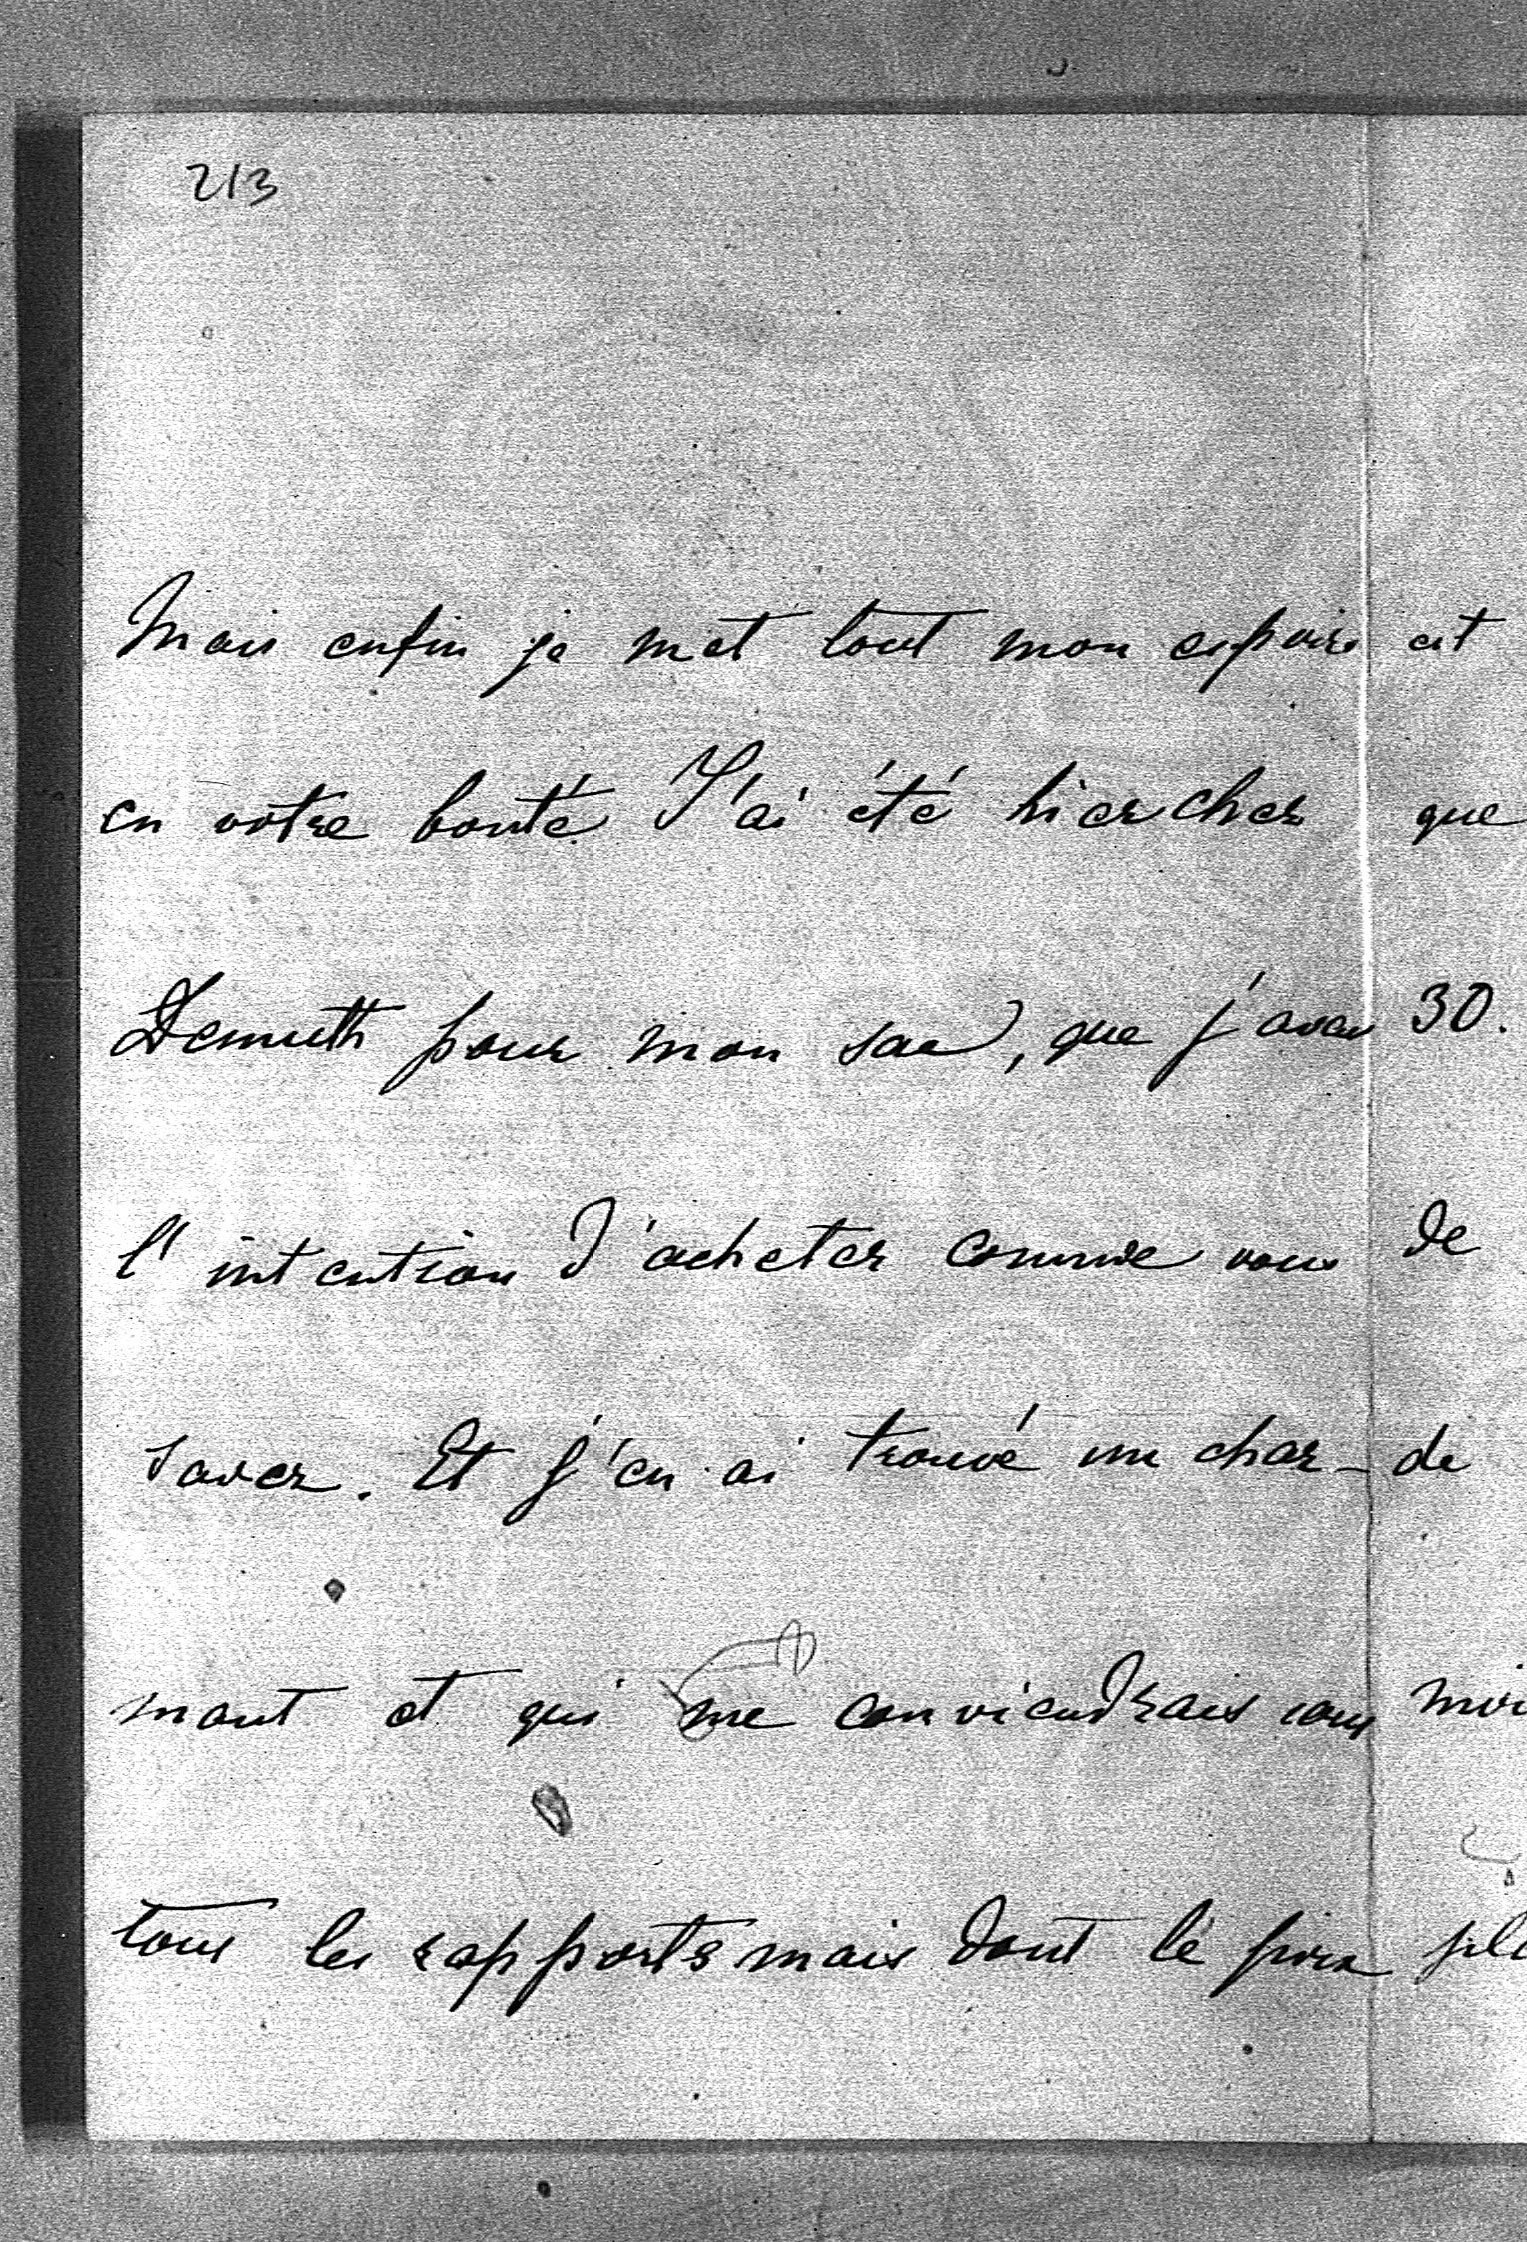 213
Mais enfin je met tout mon espoire
en votre bonté. J'ai été hier cher
Demuth pour mon sac, que j'avai
l'intention d'acheter comme vous
savez. Et j'en ai trouvé un char-
mant et qui me conviendrais sous
tous les rapports mais dont le prix
est
que
30.
de
de